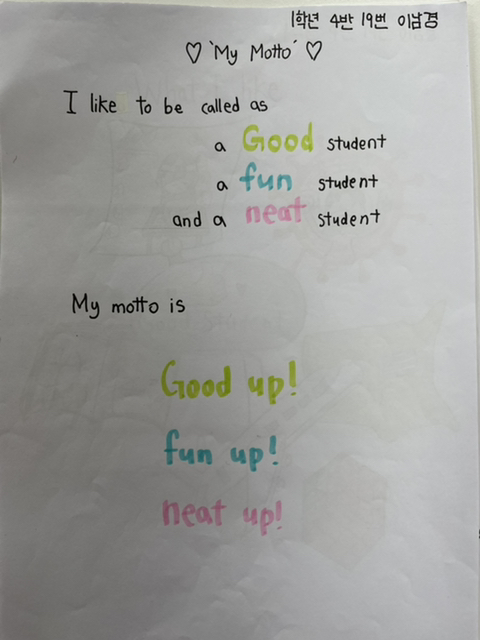 1학년 4반 19번 이남경
♡ 'My Motto' ♡
I like to be called as
a Good student
a fun student
and a neat student
My motto is
Good up!
fun up!
neat up!